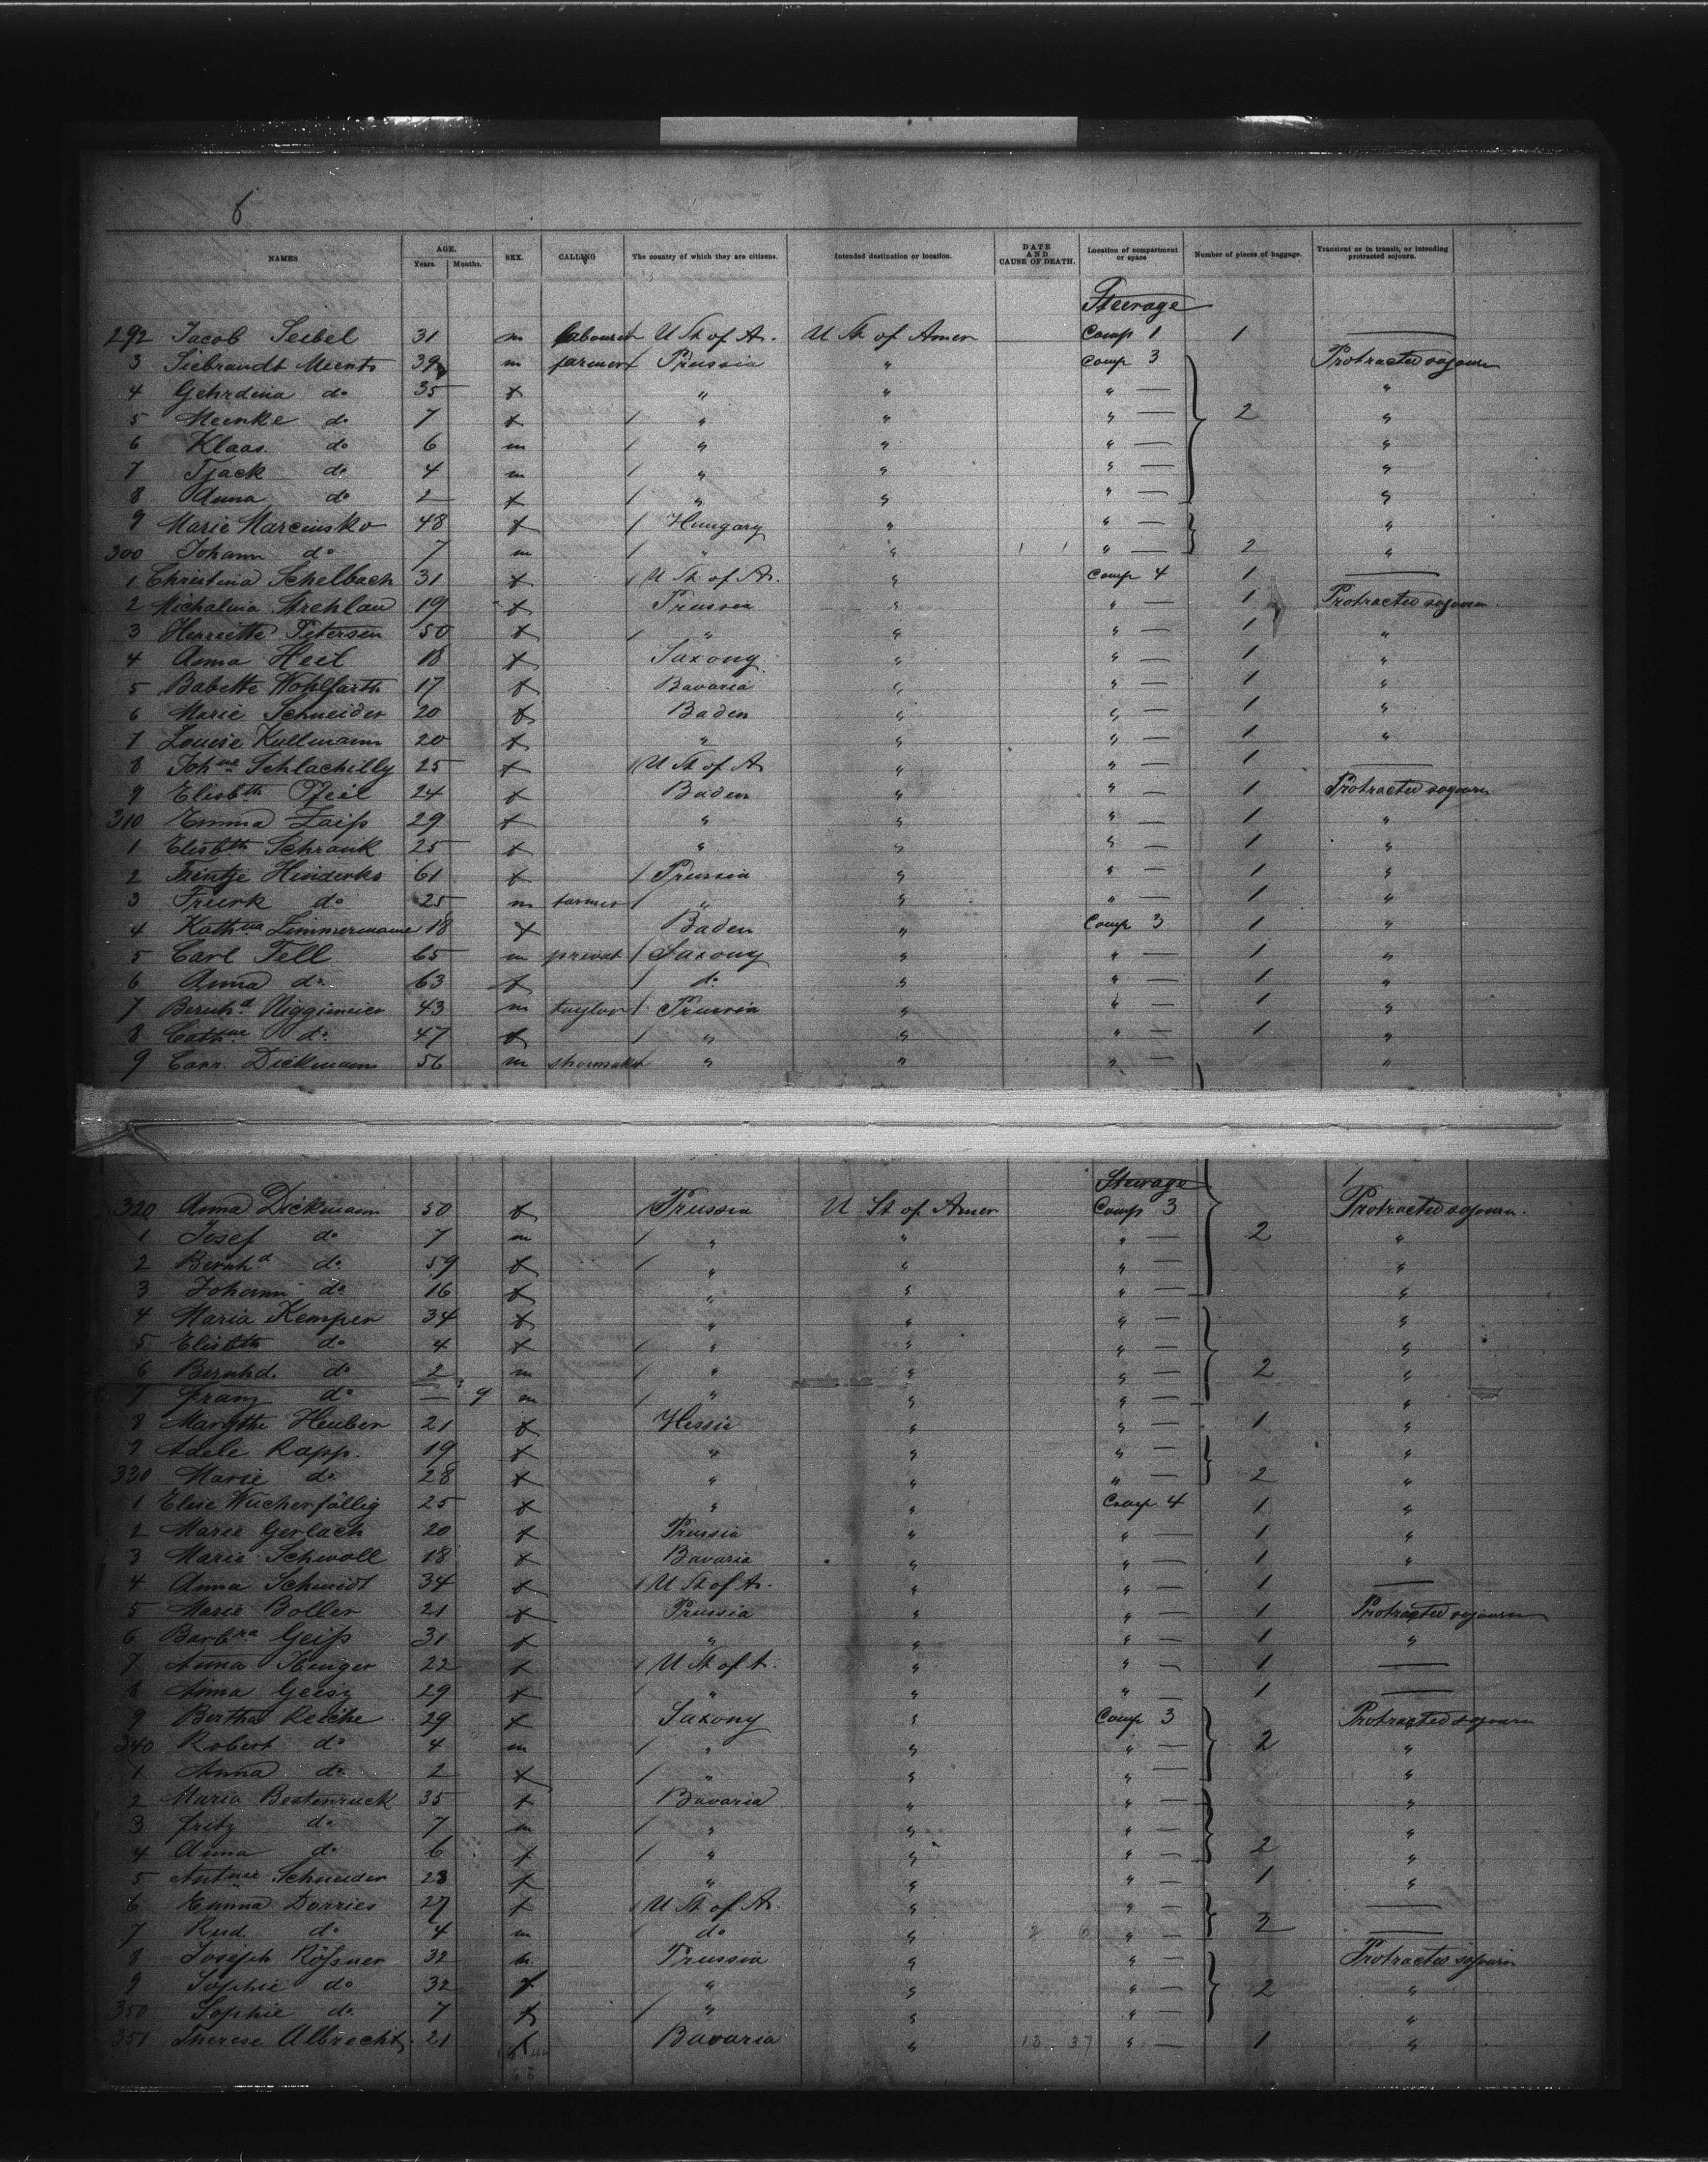 6
NAMES AGE. Years. Months. SEX. CALLING The country of which they are citizens. Intended destination or location. DATE AND CAUSE OF DEATH. Location of compartment or space Number of pieces of baggage. Transient or in transit, or intending protracted sojourn.
Steerage
292 Jacob Seibel 31 m labourer U St of A. U St of Amer Comp 1 1 —
3 Siebrandt Meents 39 m farmer Prussia " Comp 3 Protracted sojourn
4 Gehrdina do 35 f " " " — "
5 Meenke do 7 f " " " — 2 "
6 Klaas do 6 m " " " — "
7 Tjack do 4 m " " " — "
8 Anna do 2 f " " " — "
9 Marie Marcinsko 48 f Hungary " " — "
300 Johann do 7 m " " " — 2 "
1 Christina Schelbach 31 f U St of A. " Comp 4 1 —
2 Michalina Strehlau 19 f Prussia " " — 1 Protracted sojourn
3 Henriette Petersen 50 f " " " — 1 "
4 Anna Heil 18 f Saxony " " — 1 "
5 Babette Wohlfarth 17 f Bavaria " " — 1 "
6 Marie Schneider 20 f Baden " " — 1 "
7 Louise Kullmann 20 f " " " — 1 "
8 Johne Schlachilly 25 f U St of A " " — 1 —
9 Elisbth Pfeil 24 f Baden " " — 1 Protracted sojourn
310 Emma Zaiß 29 f " " " — 1 "
1 Elisbth Schrank 25 f " " " — 1 "
2 Trintje Hinderks 61 f Prussia " " — 1 "
3 Freerk do 25 m farmer " " " — 1 "
4 Kathna Zimmermann 18 f Baden " Comp 3 1 "
5 Carl Tell 65 m privat Saxony " " — 1 "
6 Anna do 63 f do " " — 1 "
7 Bernhd Niggimeier 43 m taylor Prussia " " — 1 "
8 Cathne do 47 f " " " — 1 "
9 Conr. Dickmann 56 m shoemaker " " " — "
Steerage
320 Anna Dickmann 50 f Prussia U St of Amer Comp 3 Protracted sojourn.
1 Josef do 7 m " " " — 2 "
2 Bernhd do 59 f " " " — "
3 Johann do 16 f " " " — "
4 Maria Kemper 34 f " " " — "
5 Elisbth do 4 f " " " — "
6 Bernhd. do 2 m " " " — 2 "
7 Franz do — 9 m " " " — "
8 Margthe Heuber 21 f Hessia " " — 1 "
9 Adele Rapp. 19 f " " " — "
330 Marie do 28 f " " " — 2 "
1 Elise Wucherfällig 25 f " " Comp 4 1 "
2 Marie Gerlach 20 f Prussia " " — 1 "
3 Marie Schwoll 18 f Bavaria " " — 1 "
4 Anna Schmidt 34 f U St of A. " " — 1 —
5 Marie Boller 21 f Prussia " " — 1 Protracted sojourn
6 Barbra Geiß 31 f " " " — 1 "
7 Anna 22 f U St of A. " " — 1 —
8 Anna 29 f " " " — 1 —
9 Bertha Reiche 29 f Saxony " Comp 3 Protracted sojourn
340 Robert do 4 m " " " — 2 "
1 Anna do 2 f " " " — "
2 Maria Bestenruck 35 f Bavaria " " — "
3 Fritz do 7 m " " " — "
4 Anna do 6 f " " " — 2 "
5 Antnie Schneider 23 f " " " — 1 "
6 Emma Dorries 27 f U St of A. " " — —
7 Rud. do 4 m do " " — 3 —
8 Joseph Rößner 32 m Prussia " " — Protracted sojourn
9 Sophie do 32 f " " " — 2 "
350 Sophie do 7 f " " " — "
351 Therese Albrecht 21 f Bavaria " 13 37 " — 1 "